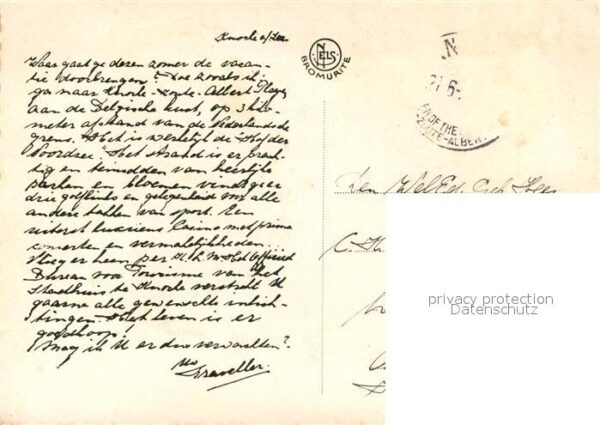 Knocke a/Zee.
Waar gaat ge dezen zomer de vacan-
tie doorbrengen? Doe zooals ik:
ga naar Knocke-Zoute-Albert Plage
aan de Belgische kust, op 3 kilo-
meter afstand van de Nederlandsche
grens. Het is werkelijk de "Hof der
Noordzee". Het strand is er prach-
tig en temidden van heerlijke
parken en bloemen vindt ge er
drie golflinks en gelegenheid voor alle
andere takken van sport. Een
uiterst luxueus Casino met prima
concerten en vermakelijkheden.
Vlieg er heen per K.L.M. Het Officieel
Bureau voor Toerisme van het
Stadhuis te Knocke verstrekt U
gaarne alle gewenschte inlich-
tingen. Het leven is er
goedkoop!
Mag ik U er dus verwachten?
Traveller.
NELS
BROMURITE
N
21 6
ZOUTE-ALBERT
Den WelEd. Geb. Heer
privacy protection
Datenschutz